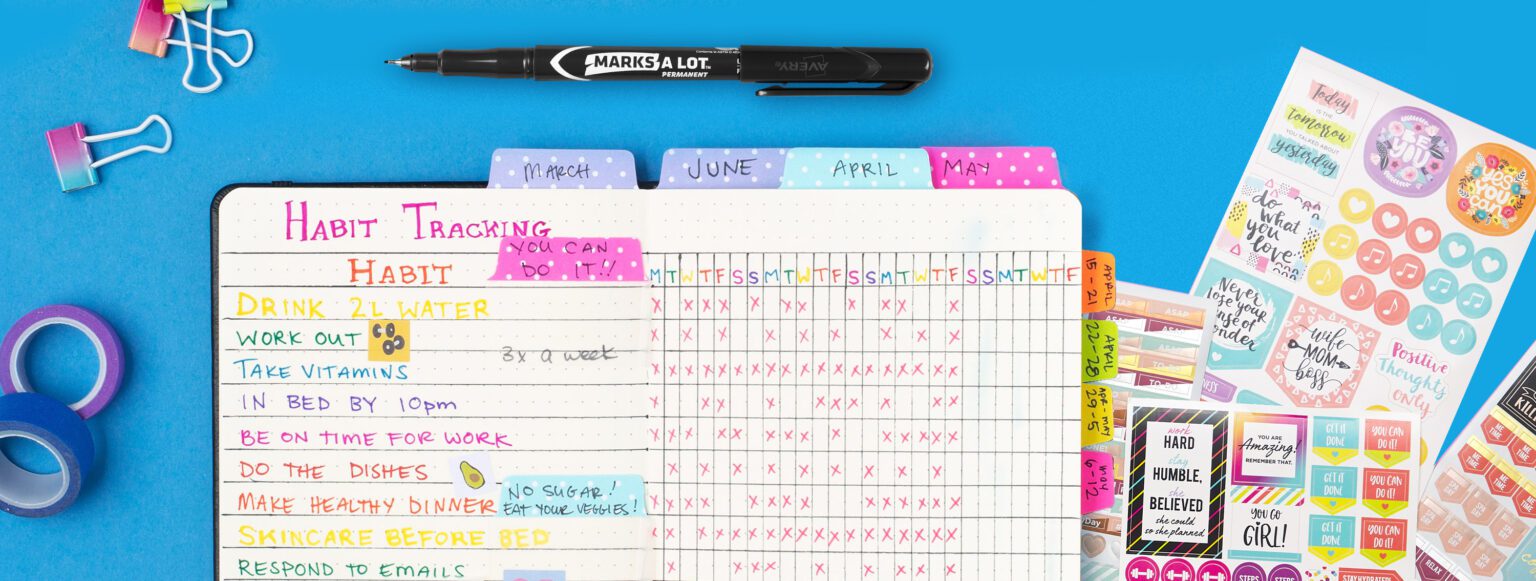 MARKS A LOT
PERMANENT
AVERY
MARCH
JUNE
APRIL
MAY
HABIT TRACKING
YOU CAN
DO IT!!
HABIT
M T W T F S S M T W T F S S M T W T F S S M T W T F
DRINK 2L WATER
WORK OUT
3x a week
TAKE VITAMINS
IN BED BY 10pm
BE ON TIME FOR WORK
DO THE DISHES
MAKE HEALTHY DINNER
NO SUGAR!
EAT YOUR VEGGIES!
SKINCARE BEFORE BED
RESPOND TO EMAILS
APRIL
15-21
APRIL
22-28
APR-MAY
29-5
MAY
6-12
Today
IS THE
tomorrow
YOU TALKED ABOUT
yesterday
BE
YOU
YES
YOU
CAN
do
what
you
love
Never
lose your
sense of
wonder
wife
MOM
boss
Positive
Thoughts
ONLY
ASAP
ASAP
TO-DO
work
HARD
stay
HUMBLE,
she
BELIEVED
she could
so she planned
YOU ARE
Amazing!
REMEMBER THAT.
YOU GO
GIRL!
GET IT
DONE
YOU CAN
DO IT!
GET IT
DONE
YOU CAN
DO IT!
GET IT
DONE
YOU CAN
DO IT!
STEPS
STEPS
STAY HYDRATED
ME
TIME
ME
TIME
ME
TIME
SPA
DAY
SPA
DAY
SPA
DAY
RELAX